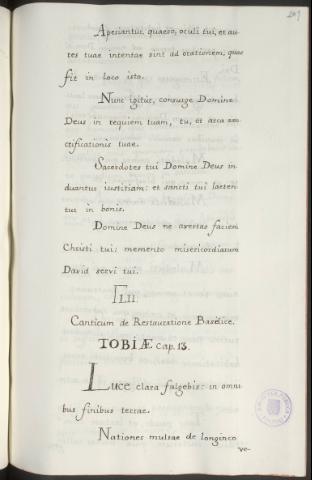 Aperiantur, quaeso, oculi tui, et au-
res tuae intentae sint ad orationem, quae
fit in loco isto.
Nunc igitur, consurge Domine
Deus in requiem tuam, tu, et arca san
ctificationis tuae.
Sacerdotes tui Domine Deus in
duantur iustitiam: et sancti tui laeten
tur in bonis.
Domine Deus ne avertas faciem
Christi tui: memento misericordiarum
David servi tui.
LII.
Canticum de Restauratione Basilice.
TOBIÆ Cap. 13.
Luce clara fulgebis: in omni
bus finibus terrae.
Nationes multae de longinco
ve-